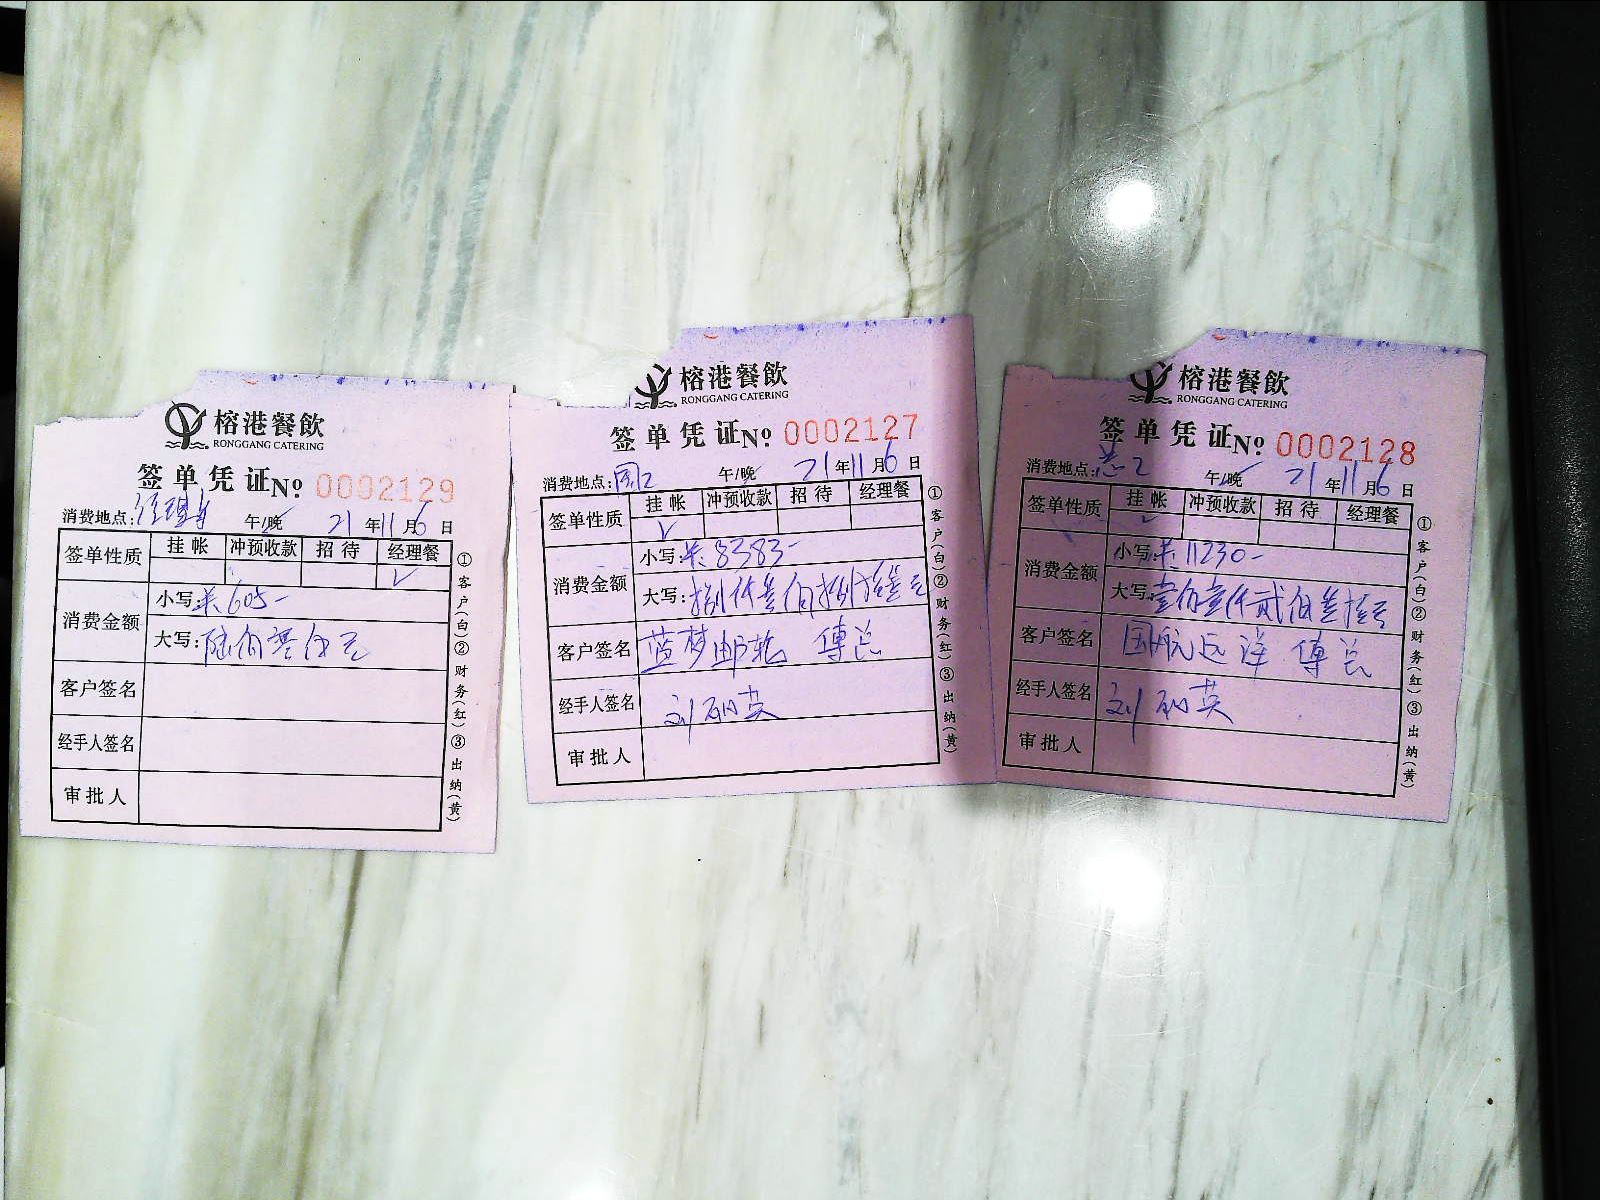 榕港餐飲
RONGGANG CATERING
签单凭证№ 0002129
消费地点: 经理 午/晚 21年11月6日
签单性质 挂帐 冲预收款 招待 经理餐
√
消费金额
小写: 605-
大写: 陆佰零伍元
客户签名
经手人签名
审批人
①客户(白)②财务(红)③出纳(黄)
榕港餐飲
RONGGANG CATERING
签单凭证№ 0002127
消费地点: 午/晚 21年11月6日
签单性质 挂帐 冲预收款 招待 经理餐
√
消费金额
小写: 8383-
大写: 捌仟叁佰捌拾叁元
客户签名 蓝梦邮轮 傅总
经手人签名 刘丽英
审批人
①客户(白)②财务(红)③出纳(黄)
榕港餐飲
RONGGANG CATERING
签单凭证№ 0002128
消费地点: 午/晚 21年11月6日
签单性质 挂帐 冲预收款 招待 经理餐
√
消费金额
小写: 11230-
大写: 壹仟贰佰叁拾元
客户签名 国航远洋 傅总
经手人签名 刘丽英
审批人
①客户(白)②财务(红)③出纳(黄)